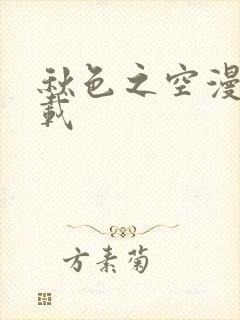 秋色之空漫
載
方素菊